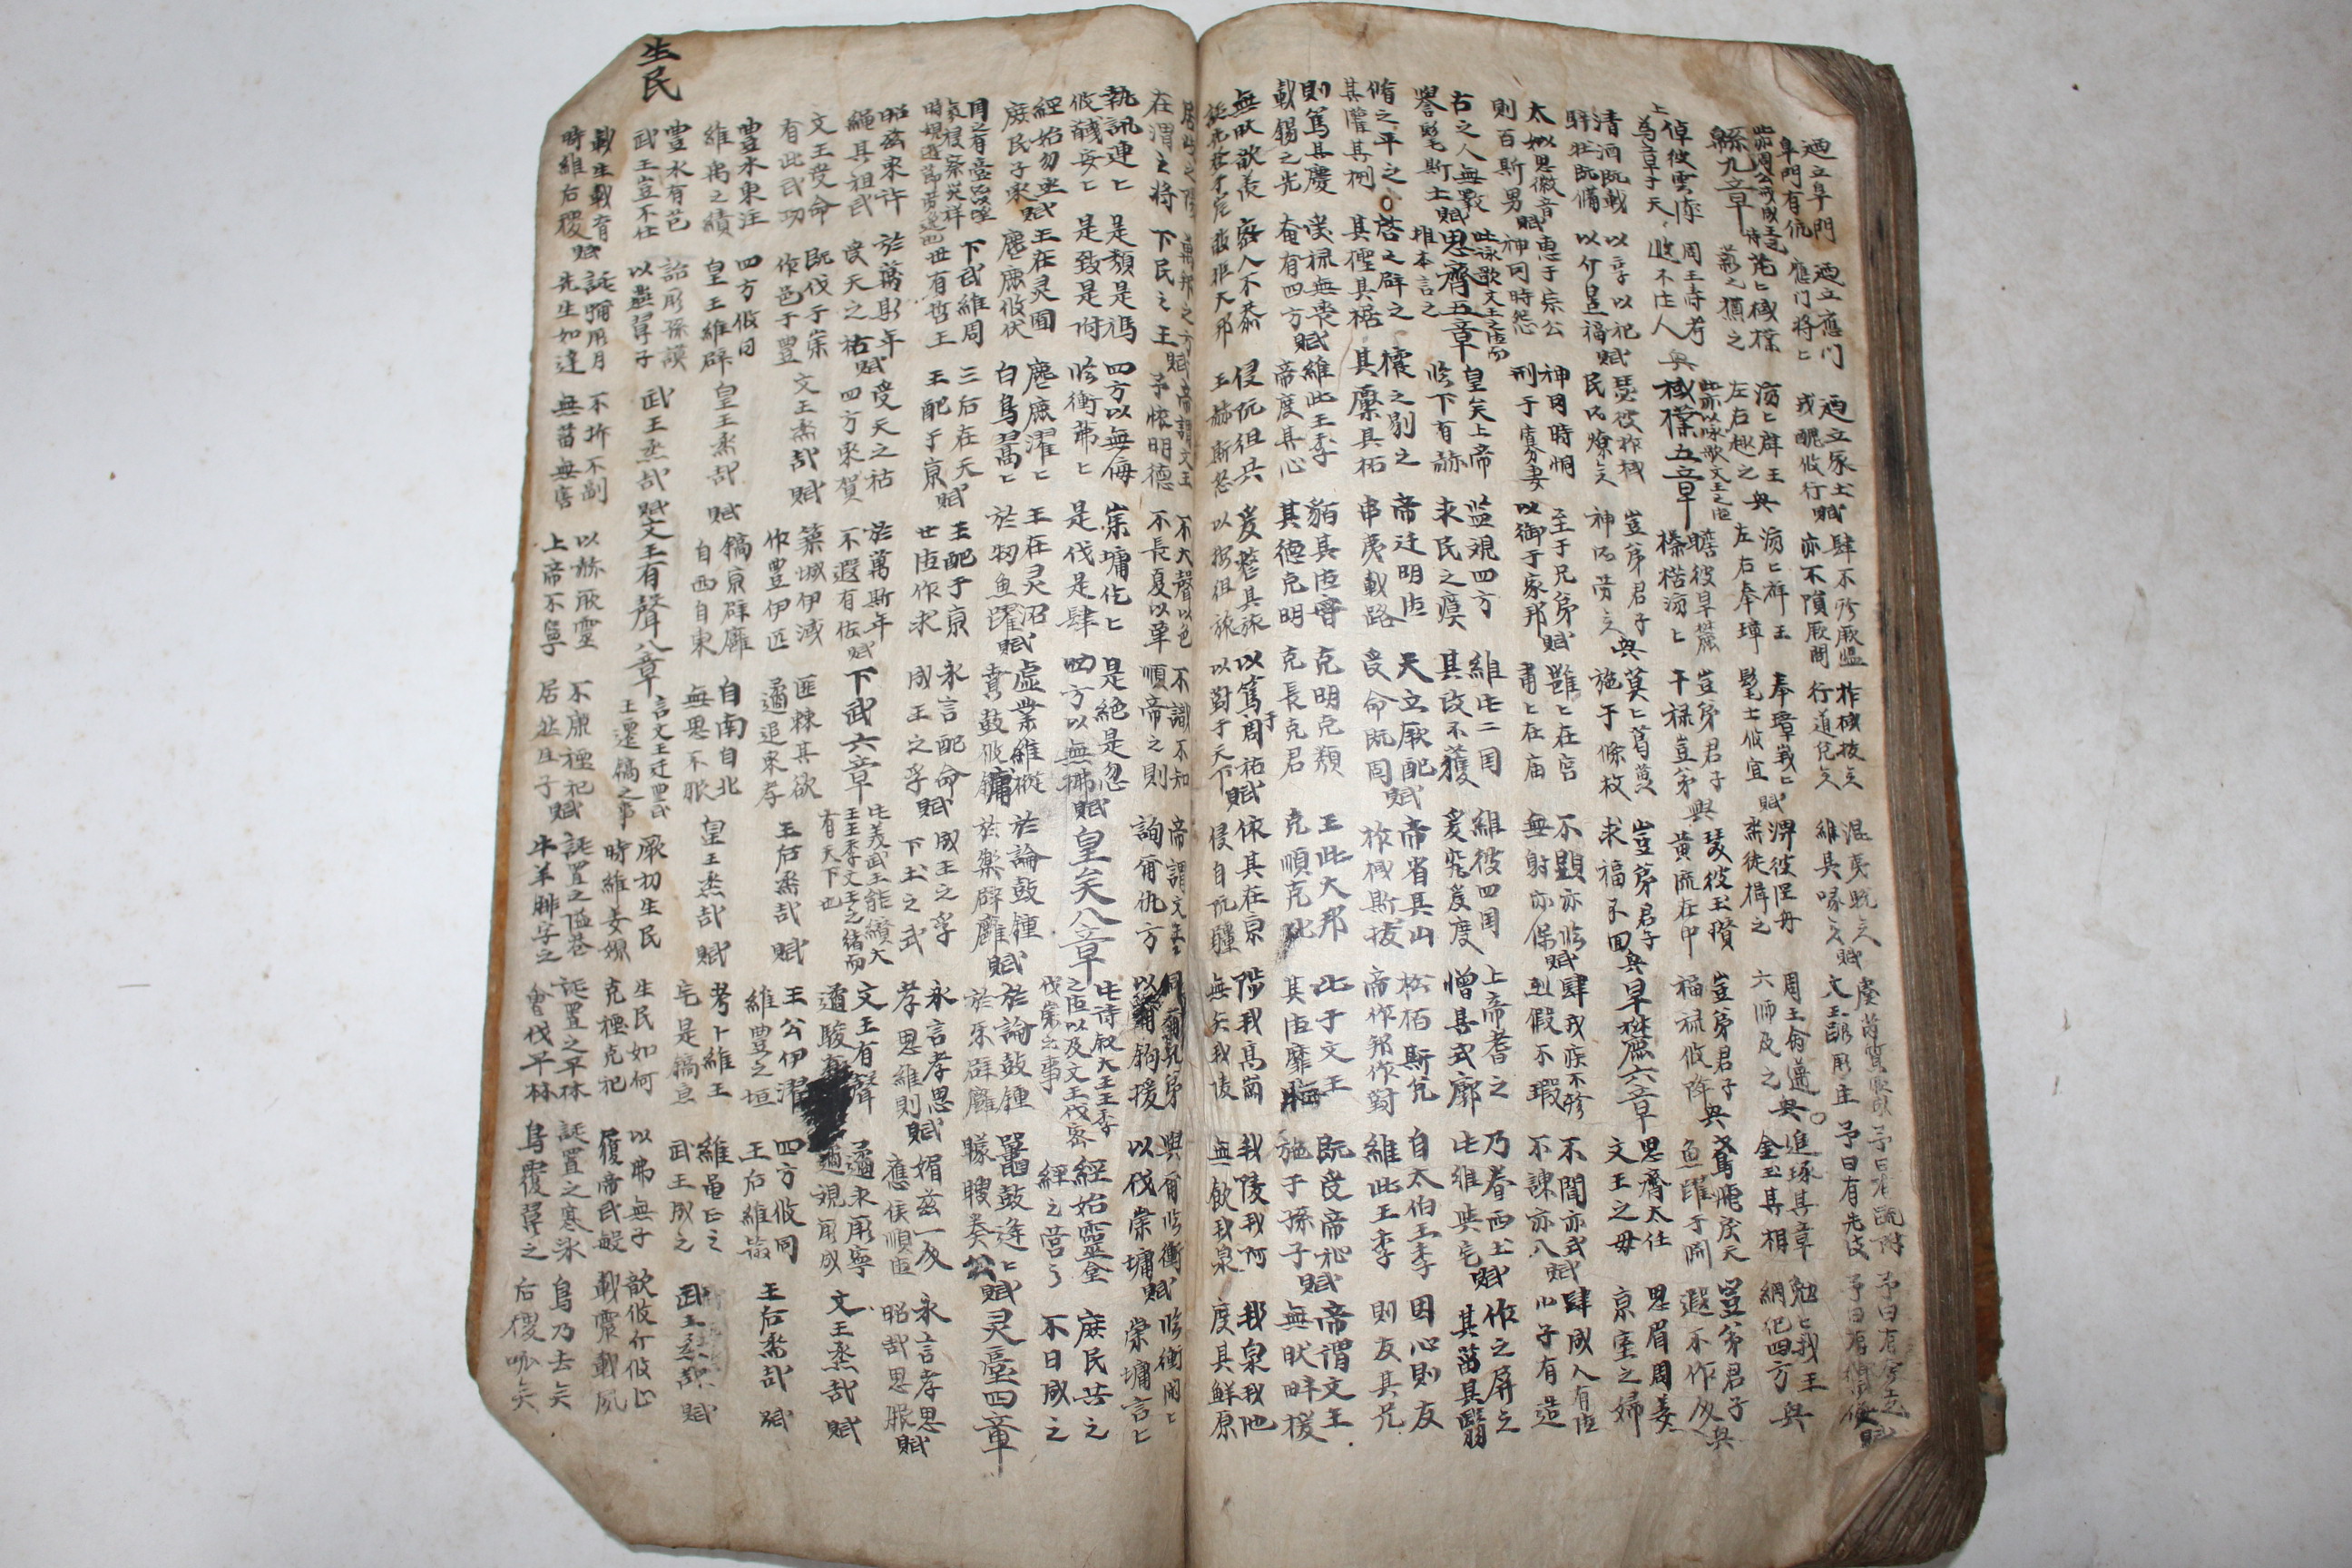 生民
迺立皋門
皋門有伉
迺立應門
應門將匕
迺立冢土
戎醜攸行賦
肆不殄厥慍
亦不隕厥問
柞棫拔矣
行道兌矣
混夷駾矣
維其喙矣賦
虞芮質厥成
文王蹶厥生
予曰有疏附
予曰有先後
予曰有奔走
予曰有禦侮賦
緜九章
芃匕棫樸
薪之槱之
濟匕辟王
左右趣之興
濟匕辟王
左右奉璋
奉璋峩匕
髦士攸宜賦
淠彼涇舟
烝徒楫之
周王于邁
六師及之興
追琢其章
金玉其相
勉匕我王
綱紀四方興
倬彼雲漢
為章于天
周王壽考
遐不作人興
棫樸五章
此亦以咏歌文王之德
瞻彼旱麓
榛楛濟匕
豈弟君子
干祿豈弟興
瑟彼玉瓚
黃流在中
豈弟君子
福祿攸降興
鳶飛戾天
魚躍于淵
豈弟君子
遐不作人興
清酒既載
騂牡既備
以享以祀
以介景福賦
瑟彼柞棫
民所燎矣
豈弟君子
神所勞矣興
莫匕葛藟
施于條枚
豈弟君子
求福不回興
旱麓六章
思齊太任
文王之母
思眉周姜
京室之婦
太姒思徽音
則百斯男賦
惠于宗公
神罔時怨
神罔時恫
刑于寡妻
至于兄弟
以御于家邦賦
雝匕在宮
肅匕在庙
不顯亦臨
無射亦保賦
肆戎疾不殄
烈假不瑕
不聞亦式
不諫亦入賦
肆成人有德
小子有造
古之人無斁
譽髦斯士賦
思齊五章
此咏歌文王之德而
推本言之
皇矣上帝
臨下有赫
監視四方
求民之瘼
維此二国
其政不獲
維彼四国
爰究爰度
上帝耆之
憎其式廓
乃眷西土
此維與宅賦
作之屏之
其菑其翳
脩之平之
其灌其栵
啓之辟之
其檉其椐
攘之剔之
其檿其柘
帝迁明德
串夷載路
天立厥配
受命既固賦
帝省其山
柞棫斯拔
松栢斯兌
帝作邦作對
自太伯王季
維此王季
因心則友
則友其兄
則篤其慶
載錫之光
受祿無喪
奄有四方賦
維此王季
帝度其心
貊其德音
其德克明
克明克類
克長克君
王此大邦
克順克比
比于文王
其德靡悔
既受帝祉
施于孫子賦
帝謂文王
無然畔援
無然歆羨
誕先登于岸
密人不恭
敢距大邦
侵阮徂共
王赫斯怒
爰整其旅
以按徂旅
以篤于周祜
以對于天下賦
依其在京
侵自阮疆
陟我高岡
無矢我陵
我陵我阿
無飲我泉
我泉我池
度其鮮原
居岐之陽
在渭之將
萬邦之方
下民之王賦
帝謂文王
予懷明德
不大聲以色
不長夏以革
不識不知
順帝之則
帝謂文王
詢爾仇方
同爾兄弟
以爾鉤援
與爾臨衝
以伐崇墉賦
臨衝閑匕
崇墉言匕
執訊連匕
攸馘安匕
是類是禡
是致是附
四方以無侮
臨衝茀匕
崇墉仡匕
是伐是肆
是絕是忽
四方以無拂賦
皇矣八章
此詩叙大王王季
之德以及文王伐密
伐崇之事
經始靈台
經之營之
庶民攻之
不日成之
經始勿亟
庶民子來賦
王在灵囿
麀鹿攸伏
麀鹿濯匕
白鳥翯匕
王在灵沼
於牣魚躍賦
虡業維樅
賁鼓維鏞
於論鼓鍾
於樂辟廱賦
於論鼓鍾
於乐辟廱
鼉鼓逢匕
矇瞍奏公賦
灵臺四章
国之有臺所以望
氛祲察災祥
時觀遊節勞逸也
下武維周
世有哲王
三后在天
王配于京賦
王配于京
世德作求
永言配命
成王之孚賦
成王之孚
下土之式
永言孝思
孝思維則賦
媚茲一人
應侯順德
永言孝思
昭哉思服賦
昭茲來許
繩其祖武
於萬斯年
受天之祜賦
受天之祜
四方來賀
於萬斯年
不遐有佐賦
下武六章
此美武王能纘大
王王季文王之緒而
有天下也
文王有聲
遹駿有聲
遹求厥寧
遹觀厥成
文王烝哉賦
文王受命
有此武功
既伐于崇
作邑于豐
文王烝哉賦
築城伊淢
作豐伊匹
匪棘其欲
遹追來孝
王后烝哉賦
王公伊濯
維豐之垣
四方攸同
王后維翰
王后烝哉賦
豐水東注
維禹之績
四方攸同
皇王維辟
皇王烝哉賦
鎬京辟廱
自西自東
自南自北
無思不服
皇王烝哉賦
考卜維王
宅是鎬京
維龜正之
武王成之
武王烝哉賦
豐水有芑
武王豈不仕
詒厥孫謨
以燕翼子
武王烝哉賦
文王有聲八章
言文王迁豐武
王遷鎬之事
厥初生民
時維姜嫄
生民如何
克禋克祀
以弗無子
履帝武敏
歆攸介攸止
載震載夙
載生載育
時維后稷賦
誕彌厥月
先生如達
不坼不副
無菑無害
以赫厥靈
上帝不寧
不康禋祀
居然生子賦
誕置之隘巷
牛羊腓字之
誕置之平林
會伐平林
誕置之寒冰
鳥覆翼之
鳥乃去矣
后稷呱矣